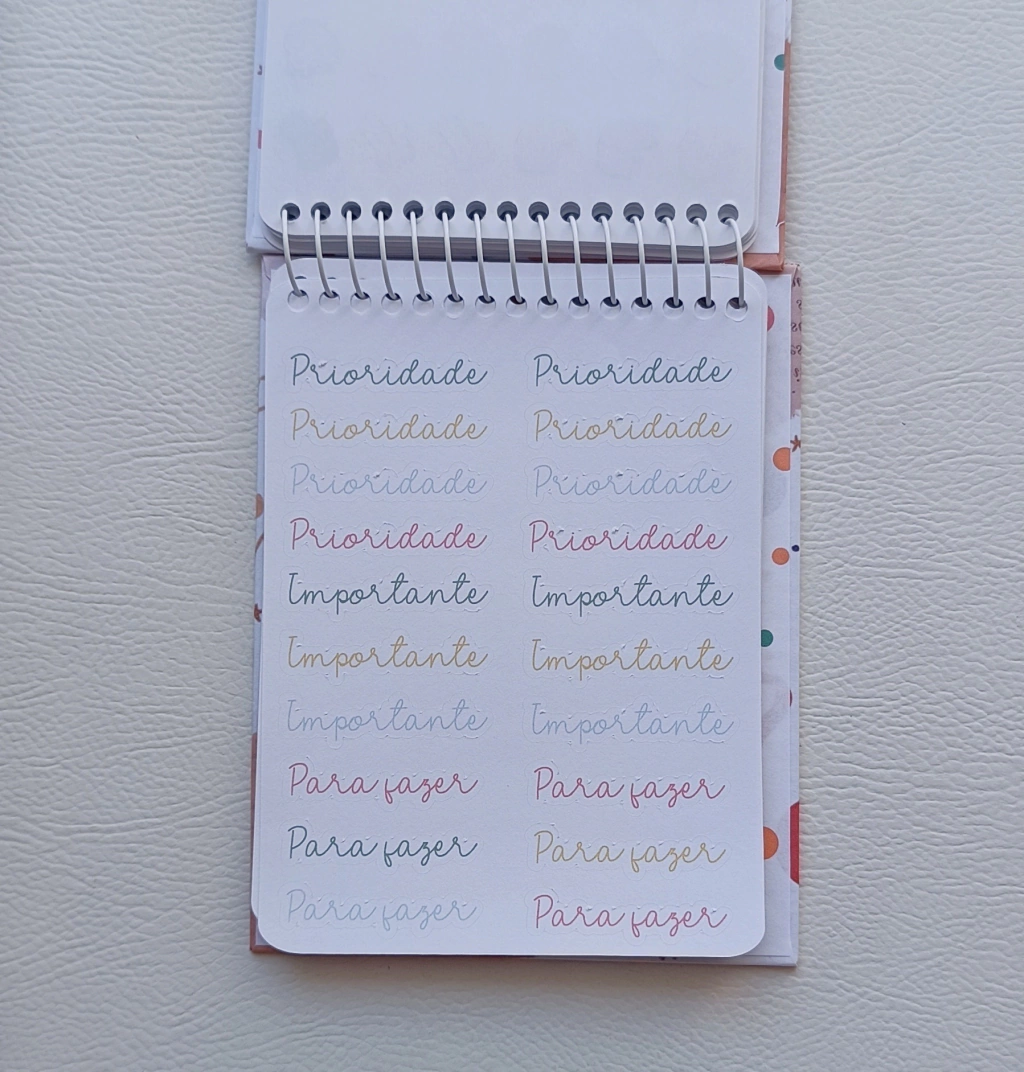 Prioridade Prioridade
Prioridade Prioridade
Prioridade Prioridade
Prioridade Prioridade
Importante Importante
Importante Importante
Importante Importante
Para fazer Para fazer
Para fazer Para fazer
Para fazer Para fazer